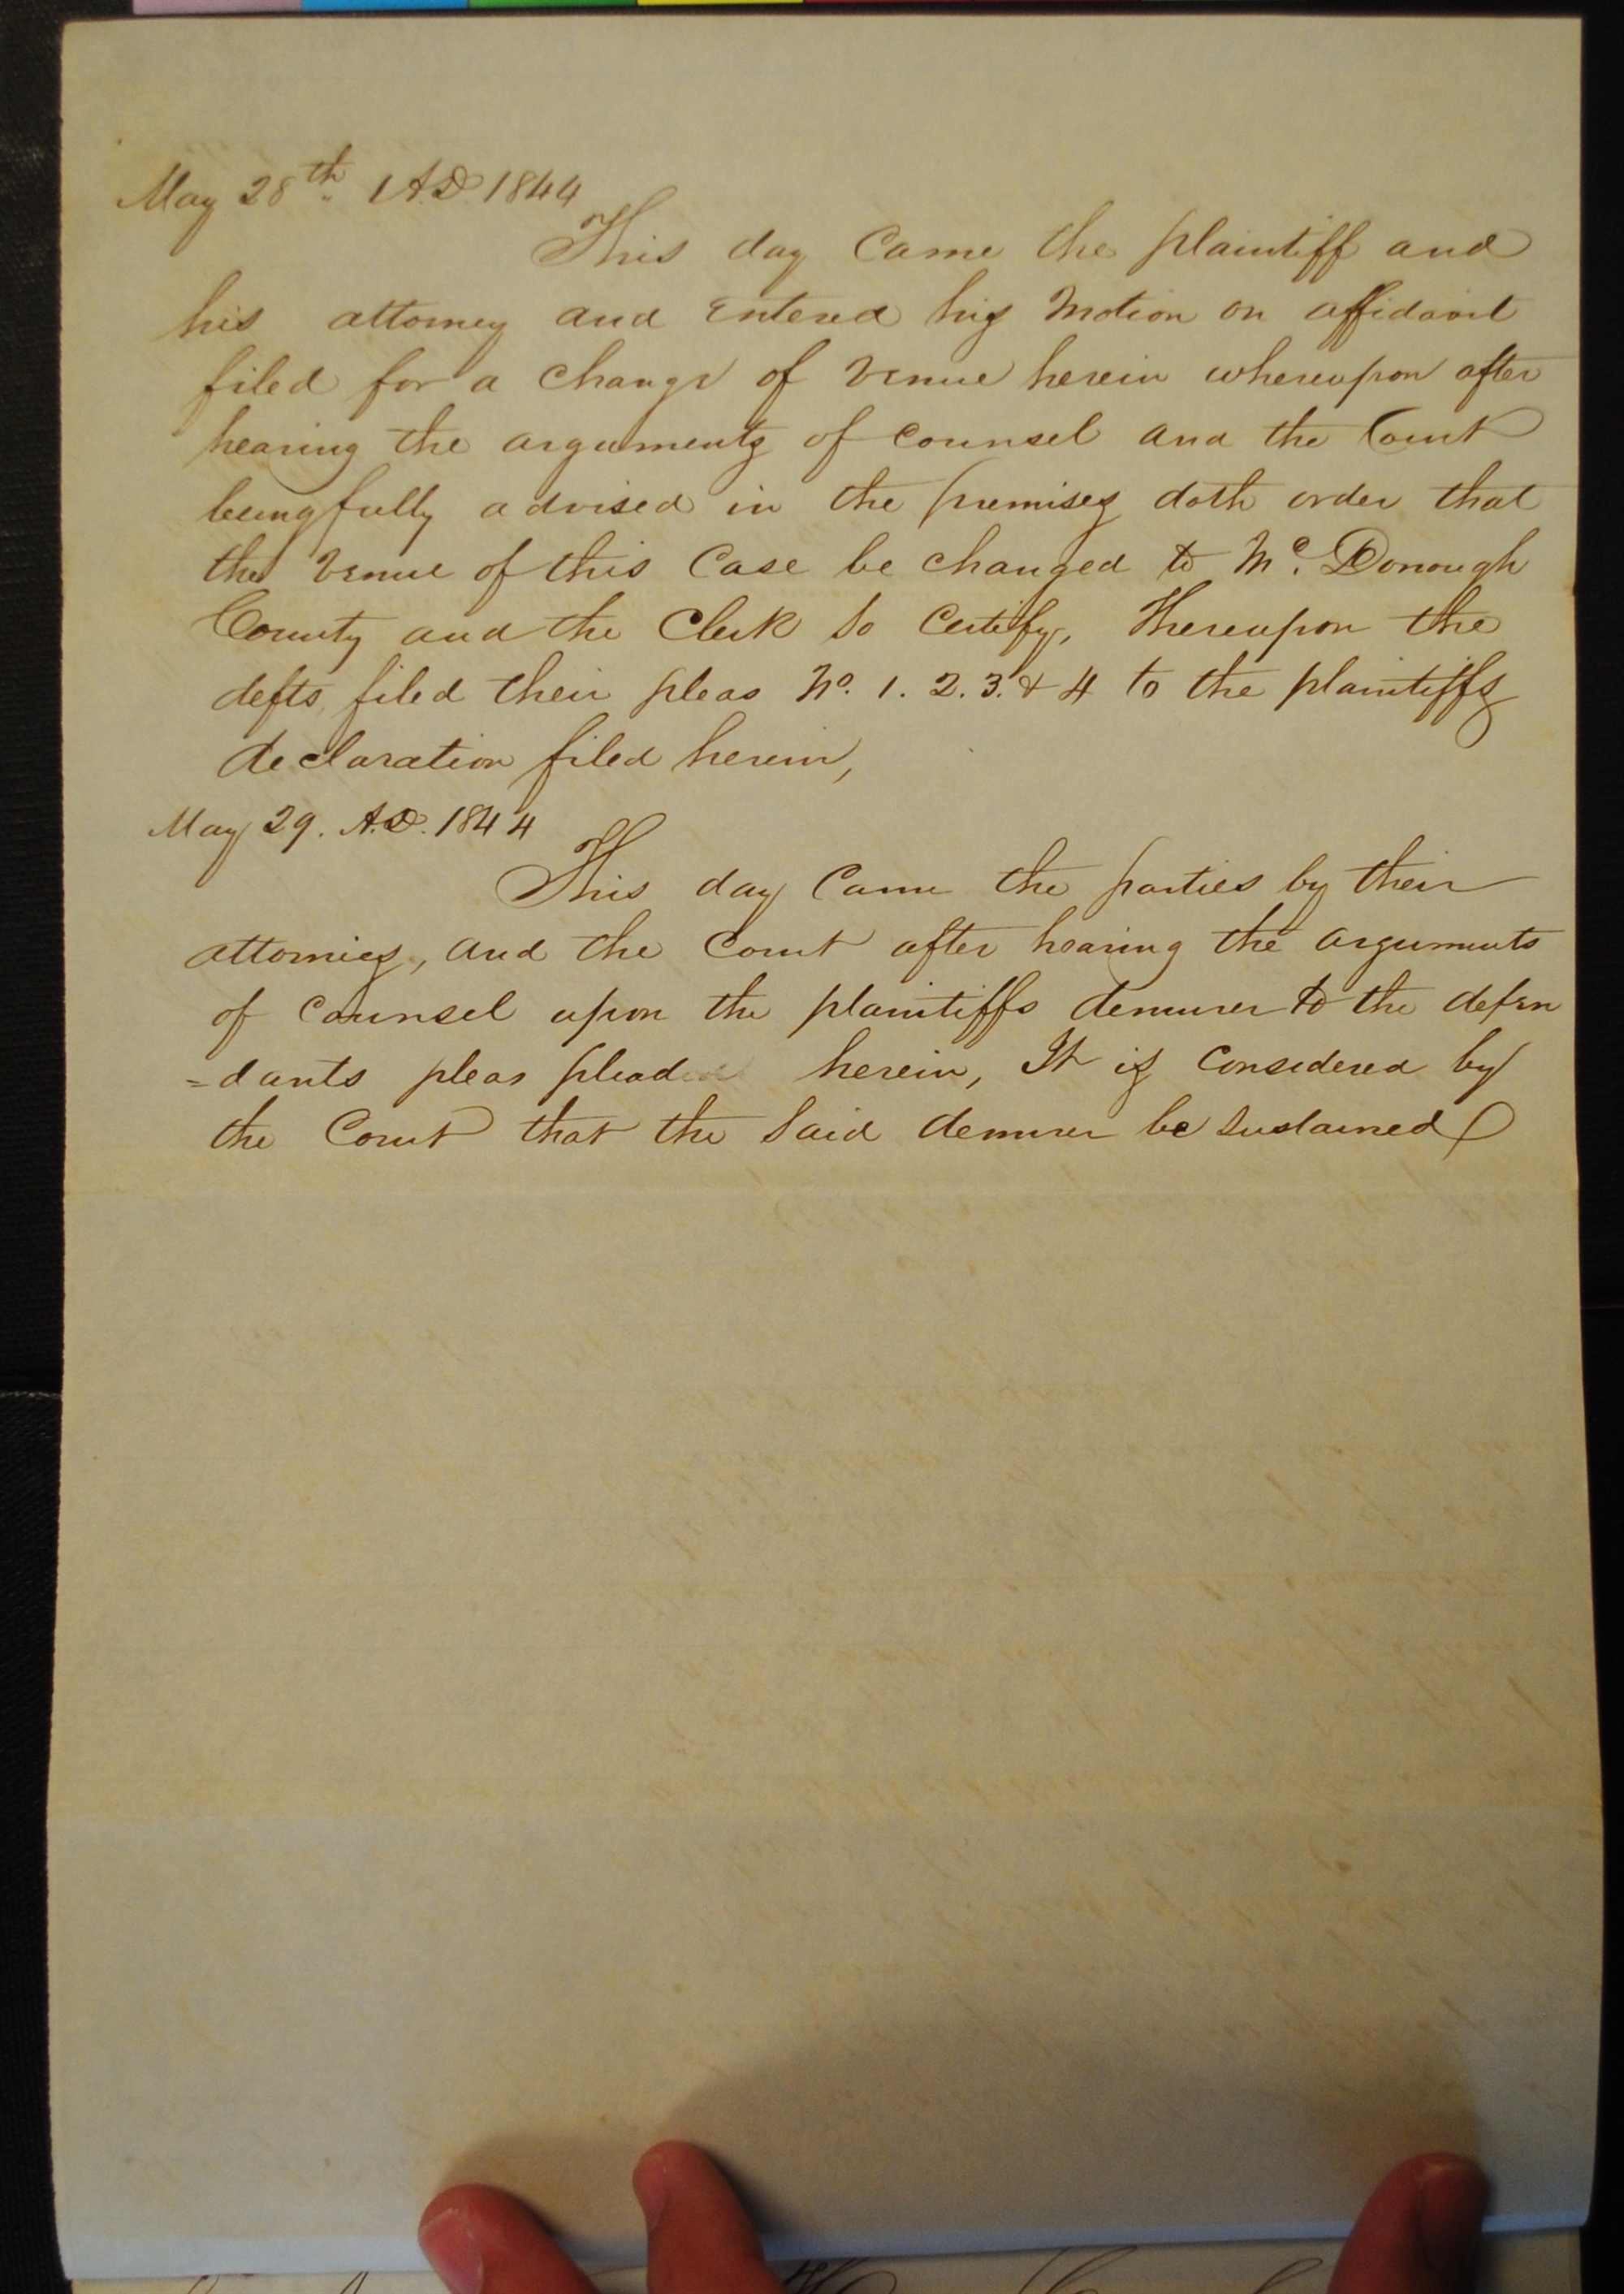 May 28th. A.D. 1844
This day Came the plaintiff and
his attorney and Entered his Motion on affidavit
filed for a change of venue herein whereupon after
hearing the arguments of counsel and the Court
being fully advised in the premises doth order that
the venue of this Case be changed to Mc. Donough
County and the Clerk so Certify, Thereupon the
defts. filed their pleas No. 1. 2. 3. & 4 to the plaintiffs
declaration filed herein,
May 29. A.D. 1844
This day Came the parties by their
attornies, and the Court after hearing the arguments
of Counsel upon the plaintiffs demurer to the defen
=dants pleas plead herein, It is Considered by
the Court that the said demurer be sustained